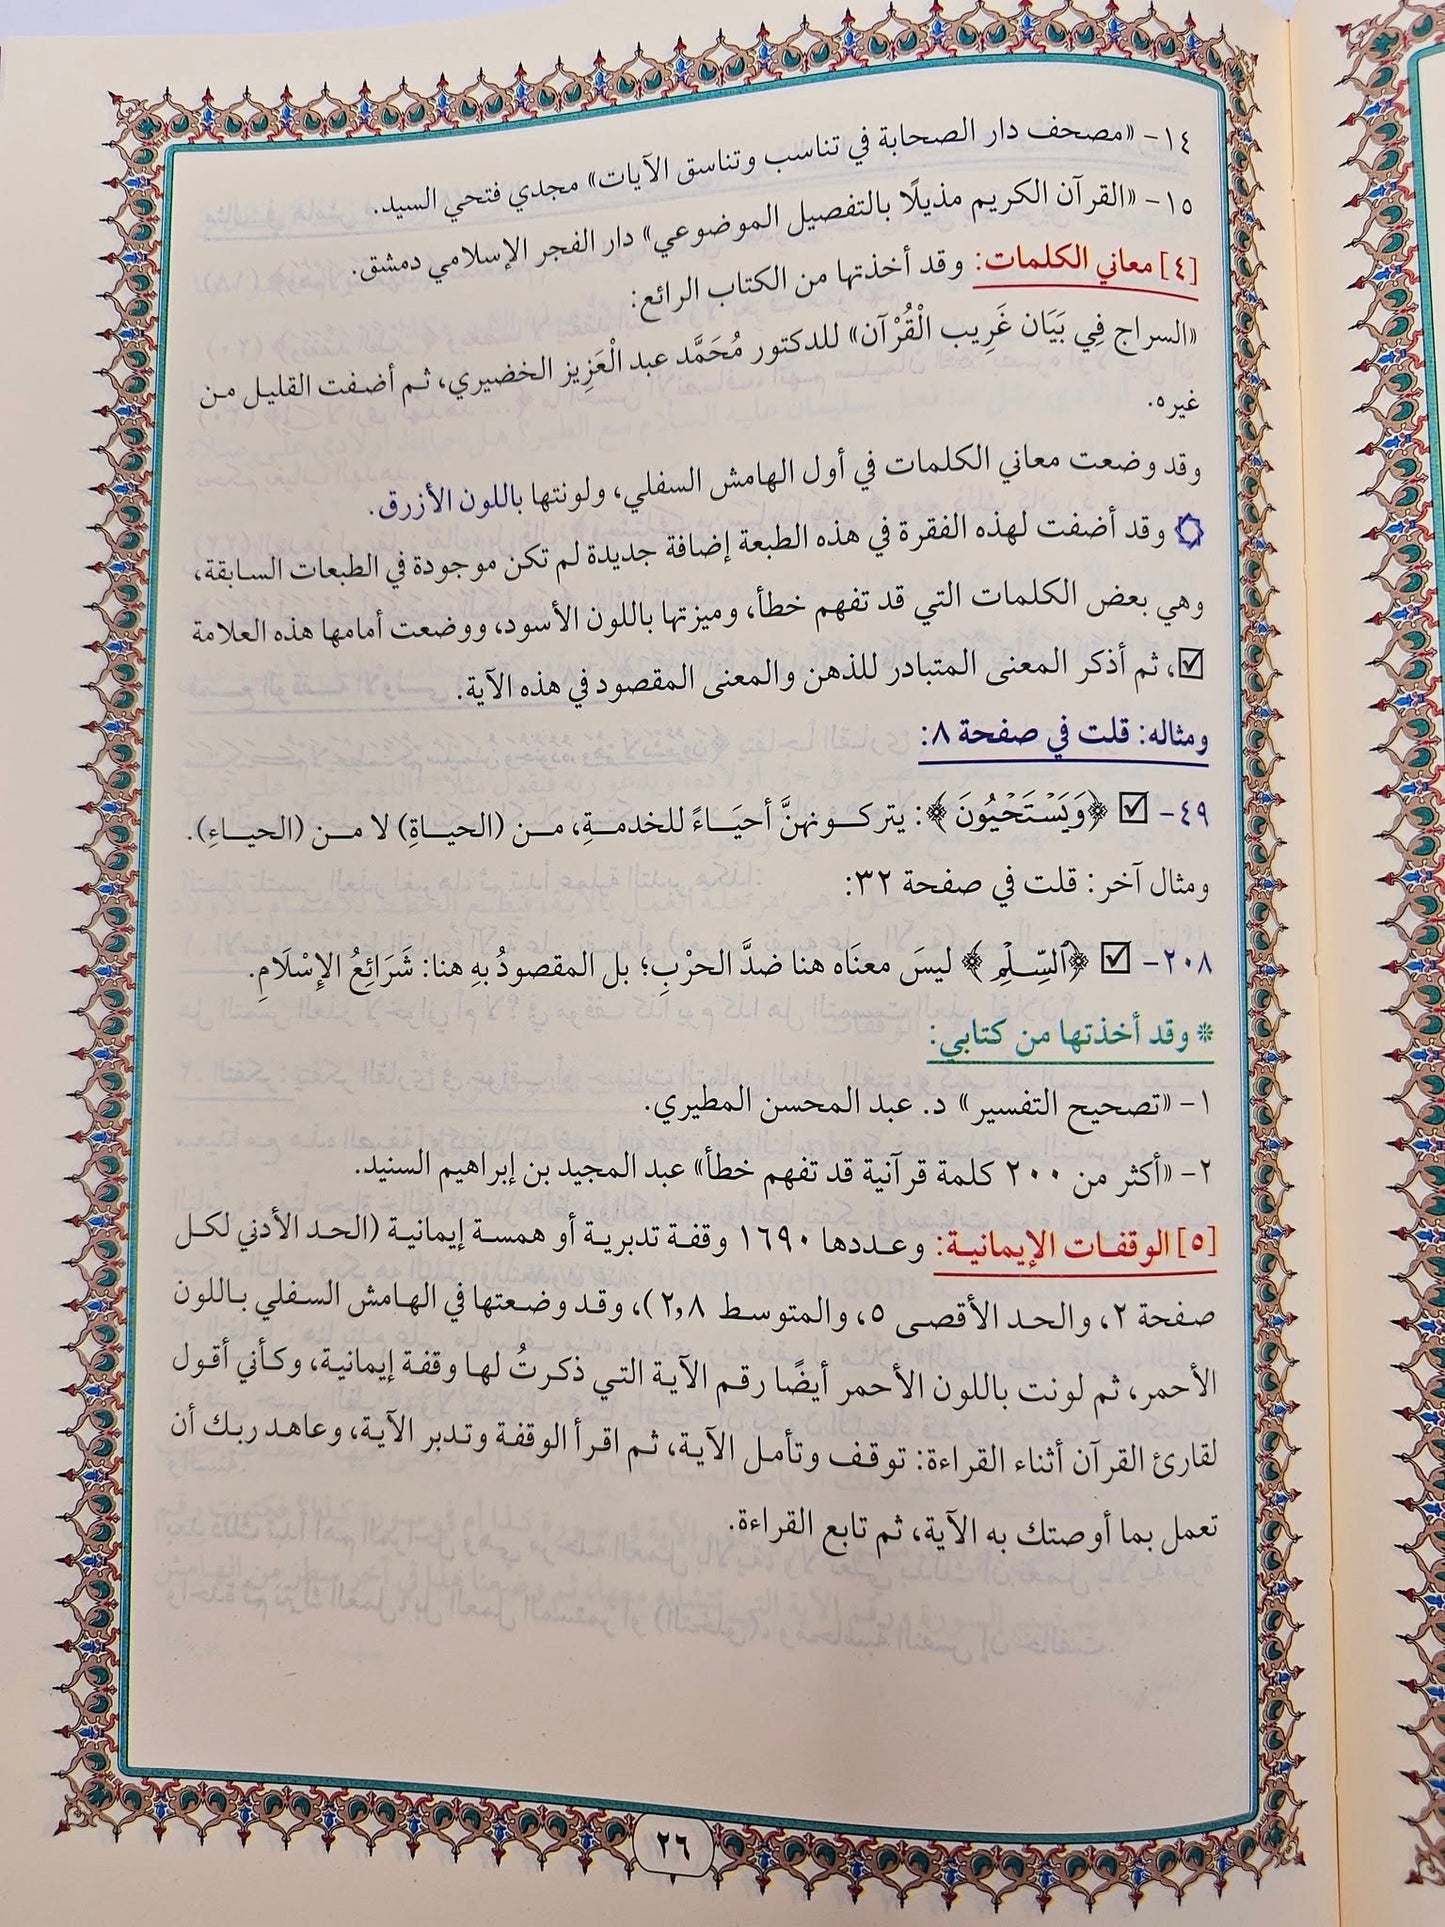 ١٤- «مصحف دار الصحابة في تناسب وتناسق الآيات» مجدي فتحي السيد.
١٥- «القرآن الكريم مذيلًا بالتفصيل الموضوعي» دار الفجر الإسلامي دمشق.
[٤] معاني الكلمات: وقد أخذتها من الكتاب الرائع:
«السراج فِي بَيَان غَرِيب الْقُرْآن» للدكتور مُحَمَّد عبد الْعَزِيز الخضيري، ثم أضفت القليل من
غيره.
وقد وضعت معاني الكلمات في أول الهامش السفلي، ولونتها باللون الأزرق.
وقد أضفت لهذه الفقرة في هذه الطبعة إضافة جديدة لم تكن موجودة في الطبعات السابقة،
وهي بعض الكلمات التي قد تفهم خطأ، وميزتها باللون الأسود، ووضعت أمامها هذه العلامة
☑، ثم أذكر المعنى المتبادر للذهن والمعنى المقصود في هذه الآية.
ومثاله: قلت في صفحة ٨:
٤٩- ☑ ﴿وَيَسْتَحْيُونَ﴾: يتركونهنَّ أحيَاءً للخدمةِ، من (الحياةِ) لا من (الحياءِ).
ومثال آخر: قلت في صفحة ٣٢:
٢٠٨- ☑ ﴿ٱلسِّلْمِ﴾ ليسَ معنَاه هنا ضدَّ الحرْبِ؛ بل المقصودُ بهِ هنا: شَرَائِعُ الإسْلَامِ.
* وقد أخذتها من كتابي:
١- «تصحيح التفسير» د. عبد المحسن المطيري.
٢- «أكثر من ٢٠٠ كلمة قرآنية قد تفهم خطأ» عبد المجيد بن إبراهيم السنيد.
[٥] الوقفات الإيمانية: وعددها ١٦٩٠ وقفة تدبرية أو همسة إيمانية (الحد الأدني لكل
صفحة ٢، والحد الأقصى ٥، والمتوسط ٢,٨)، وقد وضعتها في الهامش السفلي باللون
الأحمر، ثم لونت باللون الأحمر أيضًا رقم الآية التي ذكرتُ لها وقفة إيمانية، وكأني أقول
لقارئ القرآن أثناء القراءة: توقف وتأمل الآية، ثم اقرأ الوقفة وتدبر الآية، وعاهد ربك أن
تعمل بما أوصتك به الآية، ثم تابع القراءة.
٢٦